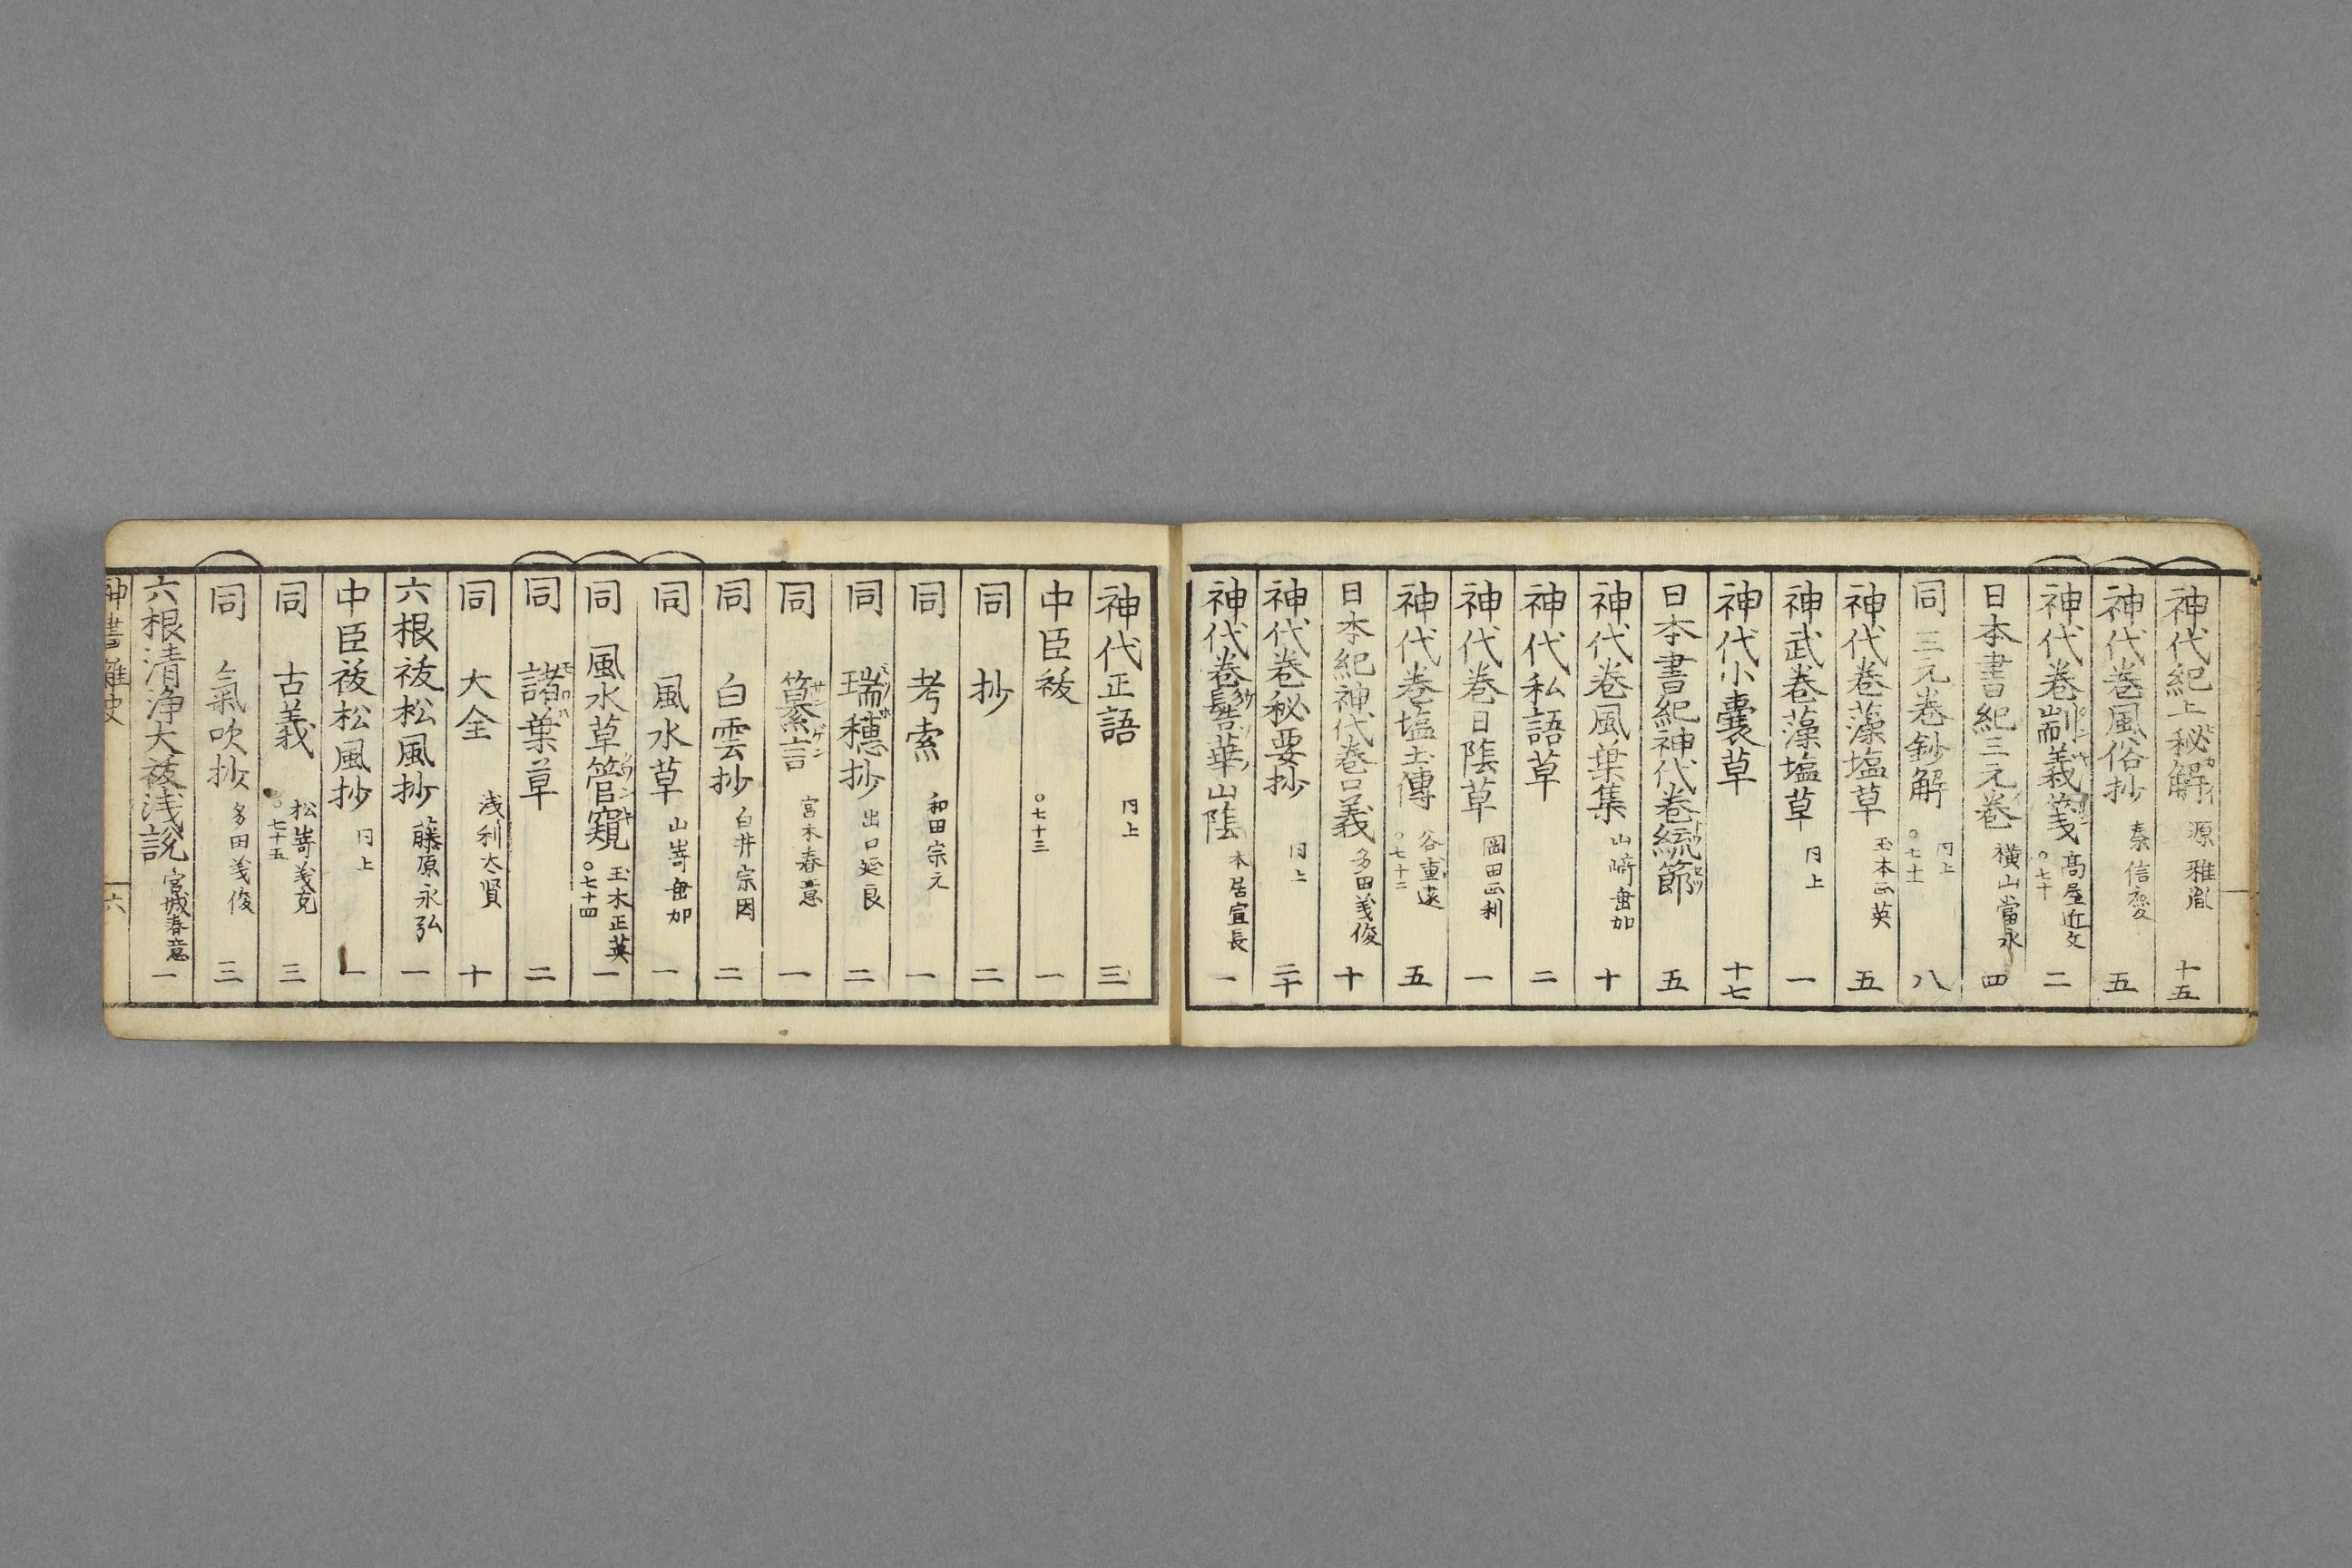 神代紀上秘解 源雅胤 十五
神代巻風俗抄 秦信慶 五
神代巻剬義箋 髙屋近文 〇七十 二
日本書紀三元巻 横山當永 四
同 三元巻鈔解 同上 〇七十一 八
神代巻藻塩草 玉木正英 五
神武巻藻塩草 同上 一
神代小嚢草 十七
日本書紀神代巻統節 五
神代巻風葉集 山﨑垂加 十
神代私語草 二
神代巻日蔭草 岡田正利 一
神代巻塩土傳 谷重遠 〇七十二 五
日本紀神代巻口義 多田義俊 十
神代巻秘要抄 同上 二十
神代巻髻華山蔭 本居宣長 一
神代正語 同上 三
中臣祓 〇七十三 一
同 抄 二
同 考索 和田宗元 一
同 瑞穗抄 出口延良 二
同 纂言 サンゲン 宮木春意 一
同 白雲抄 白井宗因 二
同 風水草 山嵜垂加 一
同 風水草管窺 玉木正英 〇七十四 一
同 諸葉草 モロハ 二
同 大全 浅利太賢 十
六根祓松風抄 藤原永弘 一
中臣祓松風抄 同上 一
同 古義 松嵜義克 〇七十五 三
同 氣吹抄 多田義俊 三
六根清浄大祓浅説 宮城春意 一
神書雜史 六